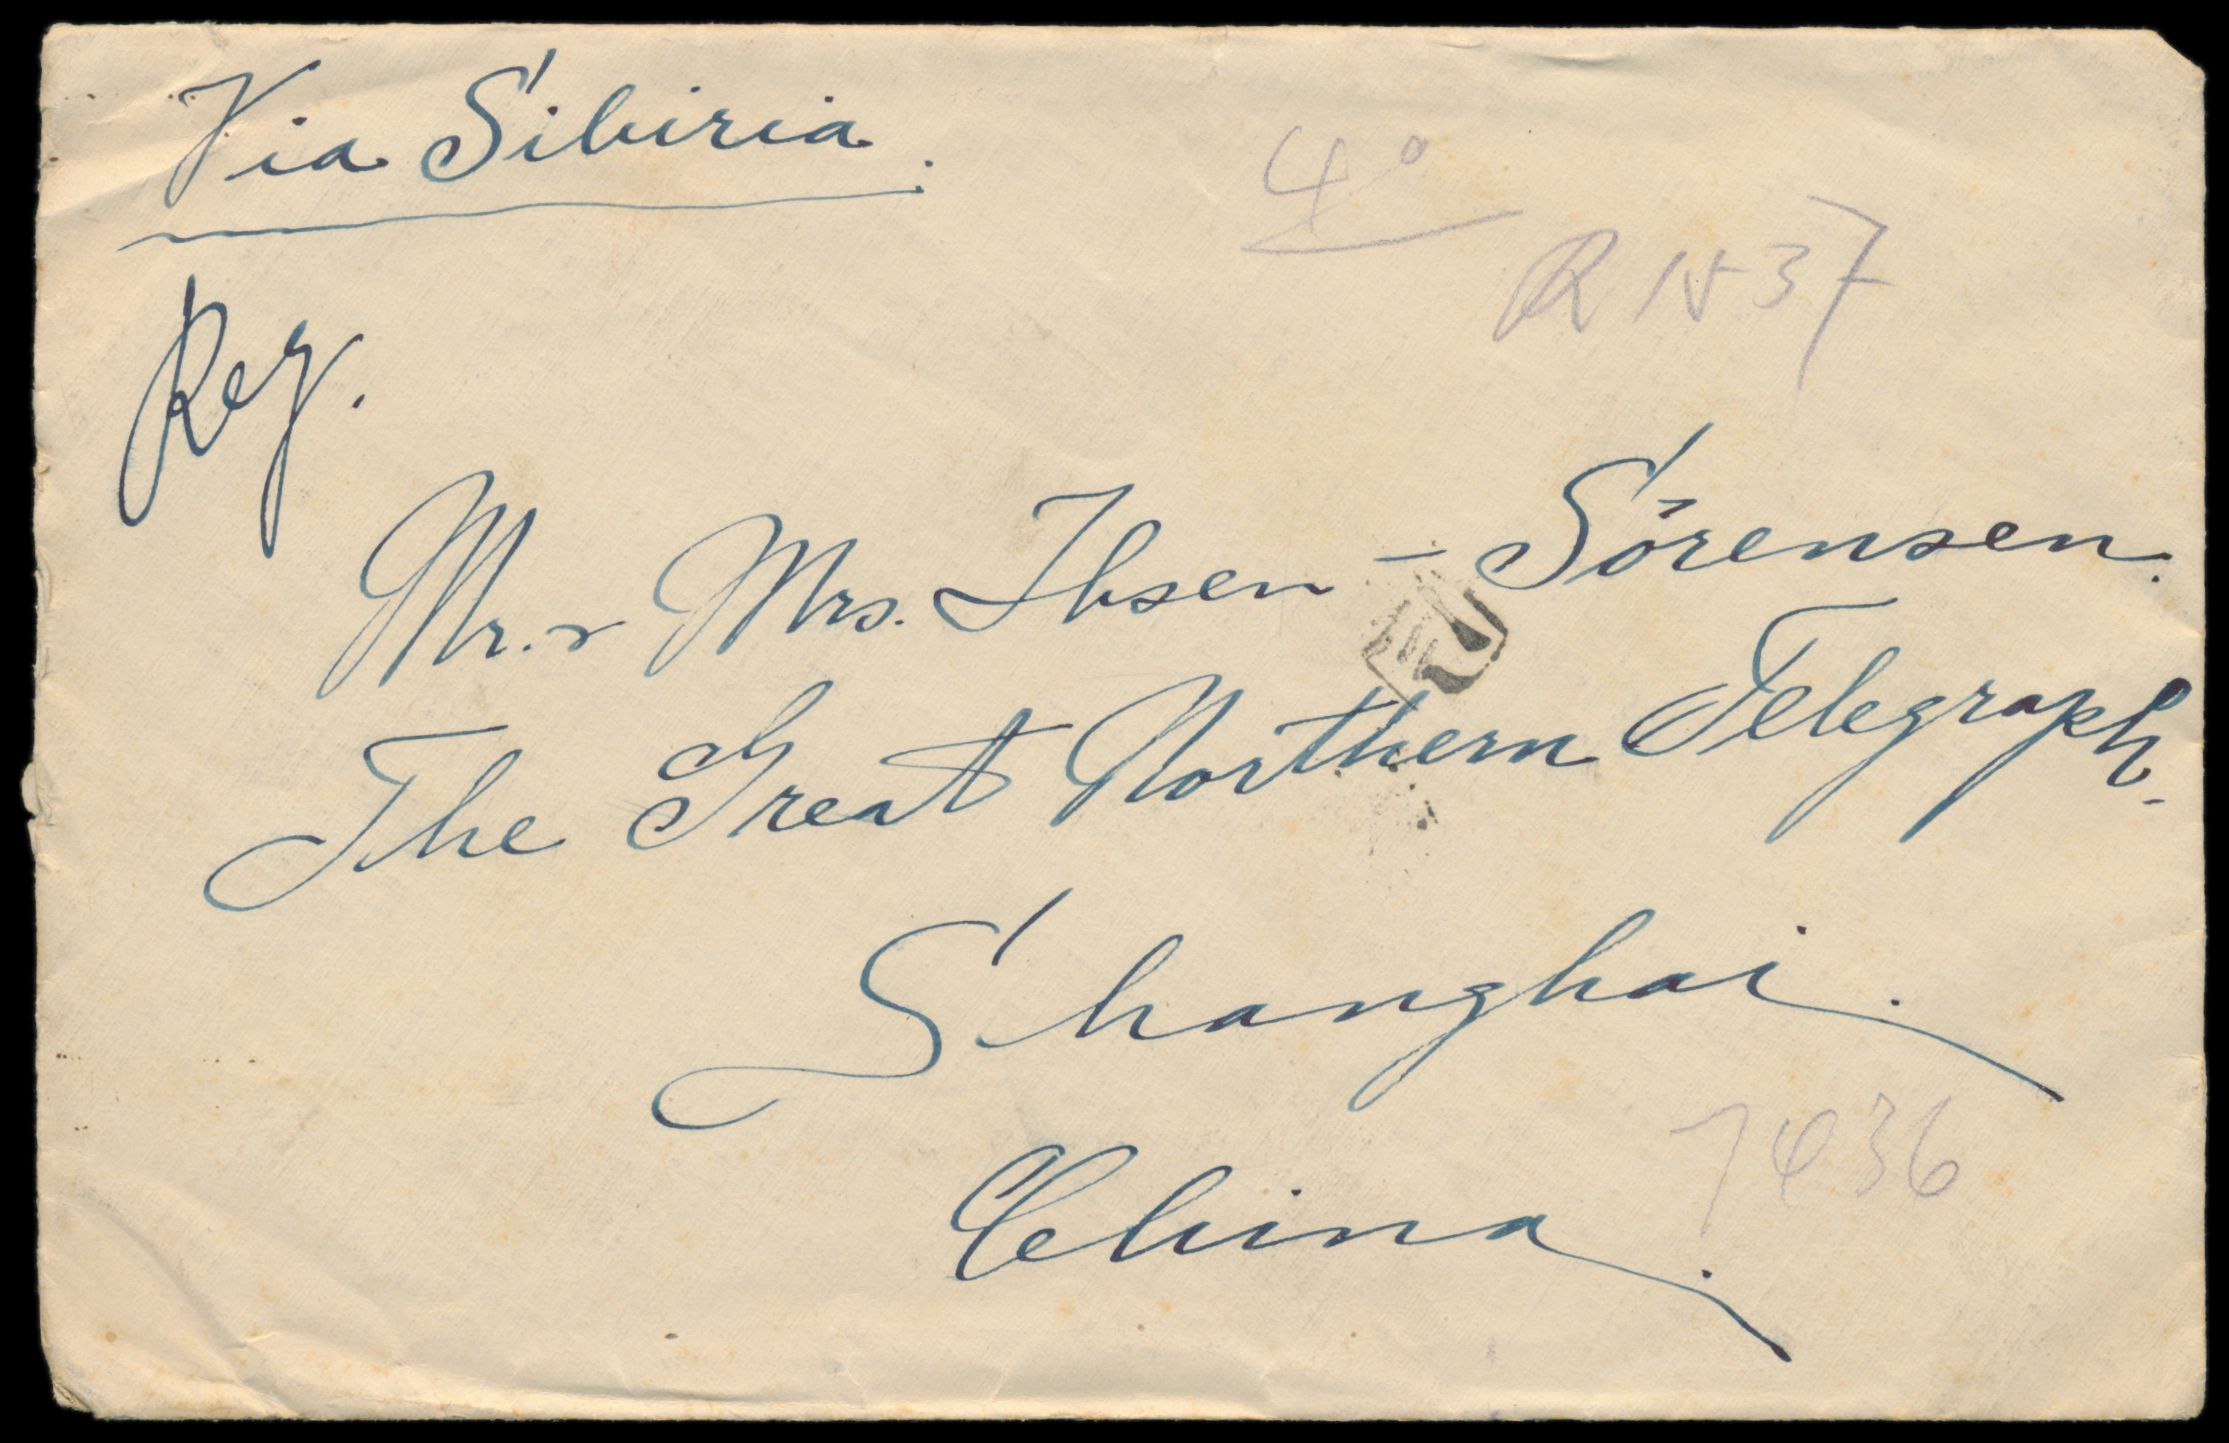 Via Sibiria.
4°
R 1537
Reg.
Mr. & Mrs. Ibsen - Sörensen.
The Great Northern Telegraph.
Shanghai.
China.
7436